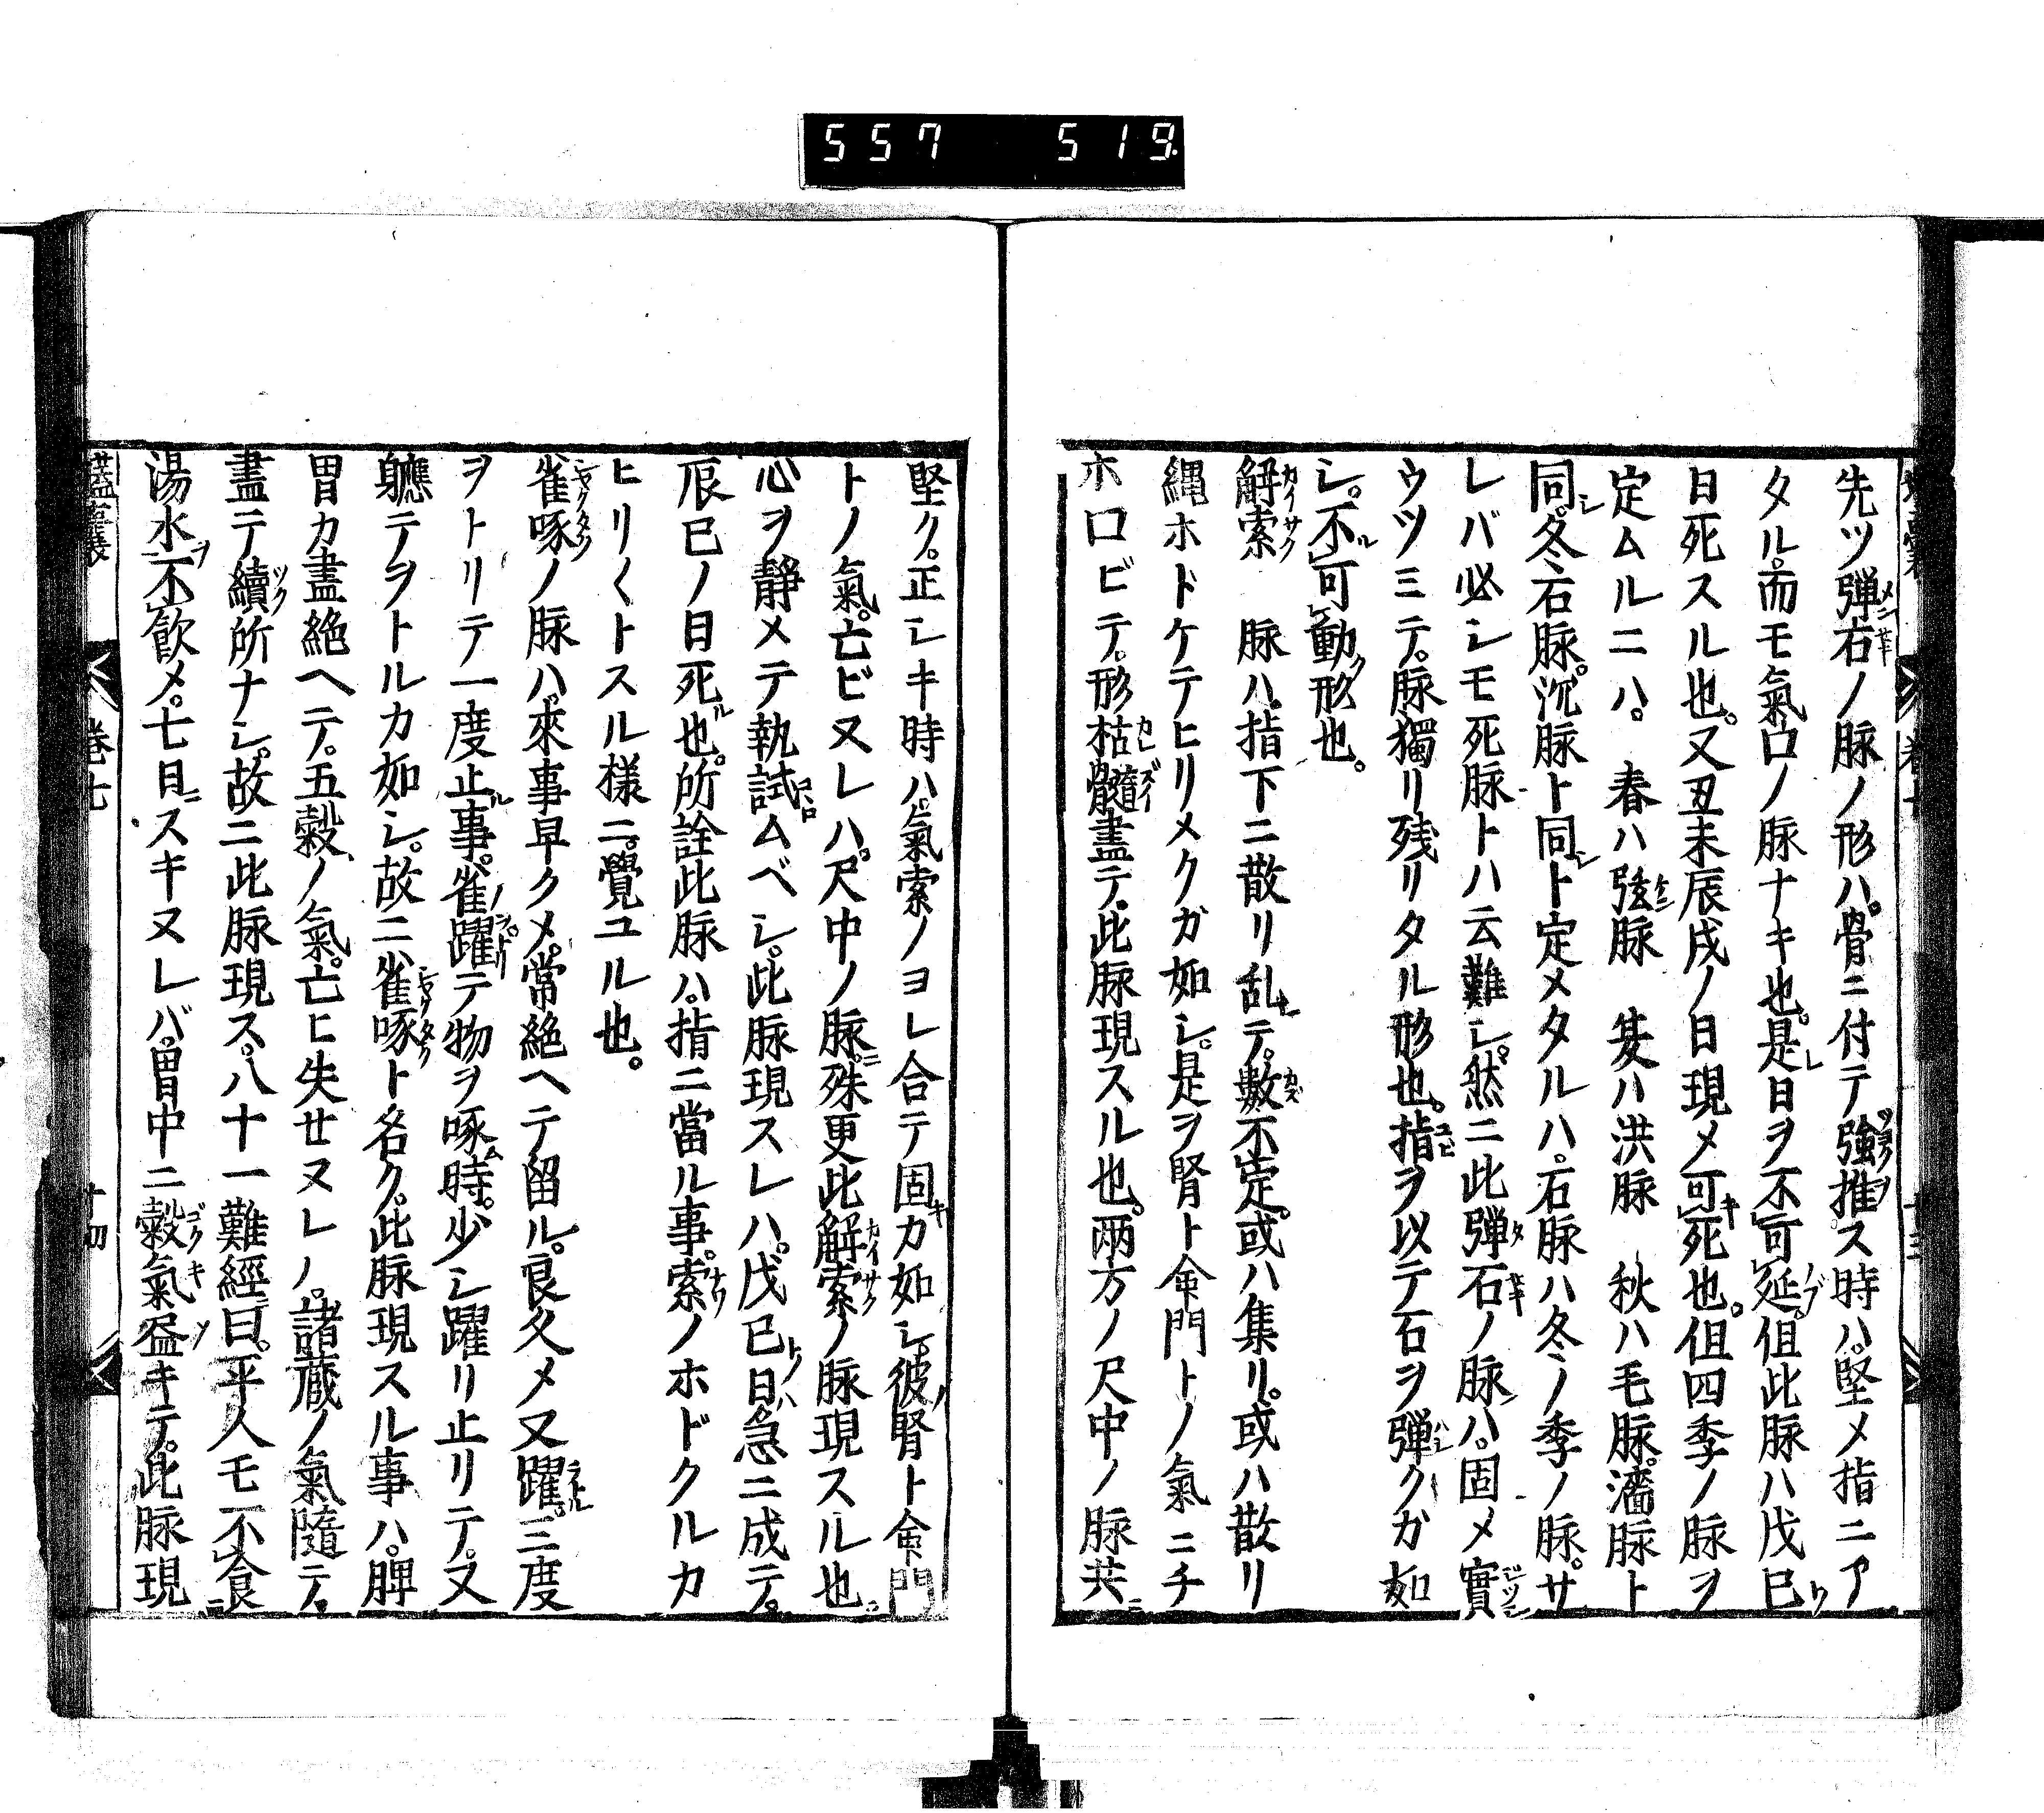 557 519
先ツ弾石ノ脉ノ形ハ。骨ニ付テ強推ス時ハ。堅メ指ニア
タル。而モ氣口ノ脉ナキ也。是日ヲ不可延。但此脉ハ戊巳
日死スル也。又丑未辰戌ノ日現メ可死也。但四季ノ脉ヲ
定ムルニハ。春ハ弦脉 夏ハ洪脉 秋ハ毛脉。濇脉ト
同。冬石脉。沉脉ト同ト定メタルハ。石脉ハ冬ノ季ノ脉。サ
レバ必シモ死脉トハ云難シ。然ニ此弾石ノ脉ハ。固メ實
ウツミテ。脉獨リ残リタル形也。指ヲ以テ石ヲ弾クガ如
シ。不可動形也。
解索 脉ハ。指下ニ散リ乱テ。數不定。或ハ集リ。或ハ散リ
縄ホドケテヒリメクガ如シ。是ヲ腎ト命門トノ氣ニチ
ホロビテ。形枯髓盡テ。此脉現スル也。兩方ノ尺中ノ脉共
堅ク。正シキ時ハ。氣索ノヨレ合テ固カ如シ。彼腎ト命門
トノ氣。亡ビヌレハ。尺中ノ脉。殊更此解索ノ脉現スル也
心ヲ靜メテ執試ムベシ。此脉現スレハ。戊巳日急ニ成テ。
辰巳ノ日死也。所詮此脉ハ。指ニ當ル事。索ノホドクルカ
ヒリ〱トスル様ニ。覺ユル也。
雀啄ノ脉ハ。來事早クメ。常絶ヘテ留ル。良久メ又躍。三度
ヲトリテ一度止事。雀躍テ物ヲ啄時。少シ躍リ止リテ。又
軈テヲトルカ如シ。故ニ雀啄ト名ク。此脉現スル事ハ。脾
胃カ盡絶ヘテ。五穀ノ氣。亡ヒ失セヌレハ。諸蔵ノ氣隨テ。
盡テ續所ナシ。故ニ此脉現ス。八十一難經曰。平人モ不食
湯水不飲メ。七日スキヌレバ。胃中ニ穀氣盡キテ。此脉現
卷七